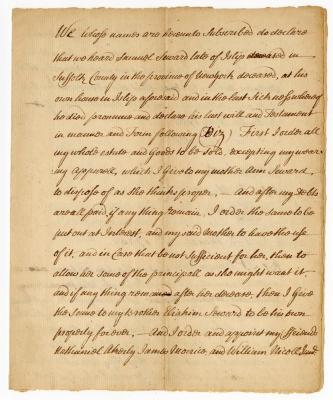 We whose names are hereunto Subscribed do declare
that we heard Samuel Seward late of Islip deceased in
Suffolk County in the province of Newyork deceased, at his
own house in Islip aforesaid and in the last Sickness whereof
he died pronounce and declare his last will and Testament
in manner and Form following (Viz) First I order all
my whole estate and Goods to be Sold, excepting my wear=
ing Apparell, which I Give to my mother Ann Seward
to dispose of as she thinks proper. And after my Debts
are all paid, if any thing remain, I order the same to be
put out at Interest, and my said Mother to have the use
of it, and in Case that be not Sufficient for her, then to
allow her some of the principall as she might want it
and if any thing remain after her decease, then I Give
the Same to my brother Eliphim Seward to be his own
property forever. And I order and appoint my ffriends
Nathaniel James Morrice, and William Nicoll Junr